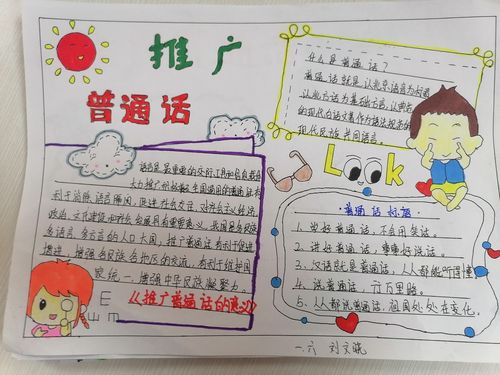 推广
普通话
什么是普通话？
普通话就是以北京语音为标准
以北方话为基础方言，以典范
的现代白话文著作为语法规范的
现代民族共同语言。
Look
语言是最重要的交际工具和信息载体
大力推广和普及全国通用的普通话有
利于消除语言隔阂，促进社会交往，对社会主义经济
政治、文化建设和社会发展具有重要意义。我国是多民族
多语言、多方言的人口大国，推广普通话有利于促进
增进各民族各地区的交流，有利于维护国
家统一，增强中华民族凝聚力。
《推广普通话的意义》
普通话标语
1、说好普通话，不自用笑话。
2、讲好普通话，事事好说话。
3、汉语就是普通话，人人都能听得懂
4、说普通话，行万里路。
5、人人都说普通话，祖国处处在变化。
E
m
一.六 刘文晓